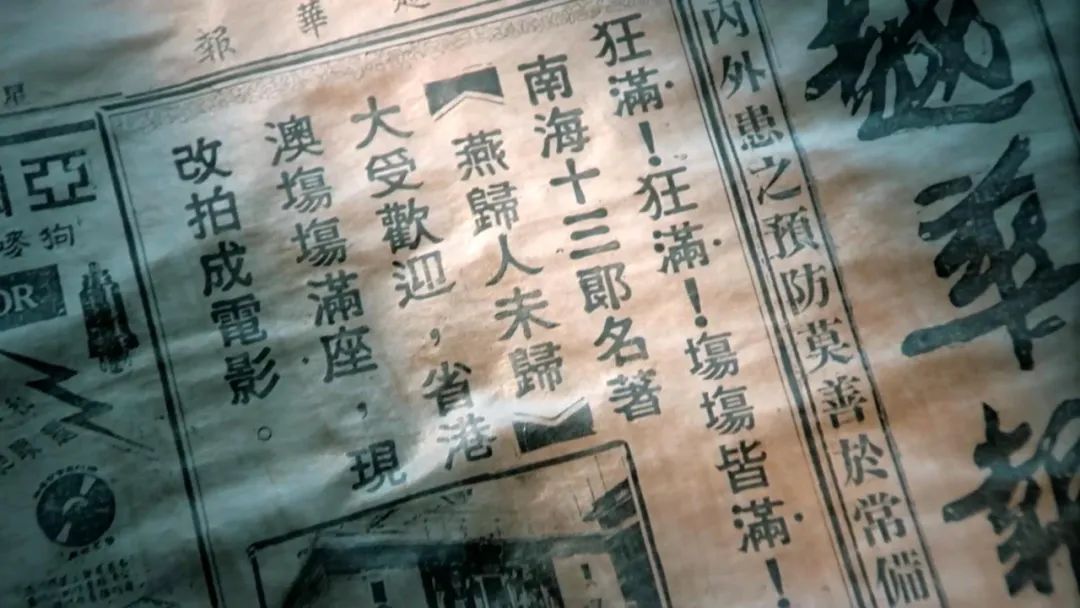 越華報
華報
內外患之預防莫善於常備
狂滿！狂滿！塲塲皆滿！
南海十三郎名著
《燕歸人未歸》
大受歡迎，省港
澳塲塲滿座，現
改拍成電影。
亞
狗嘜
OR